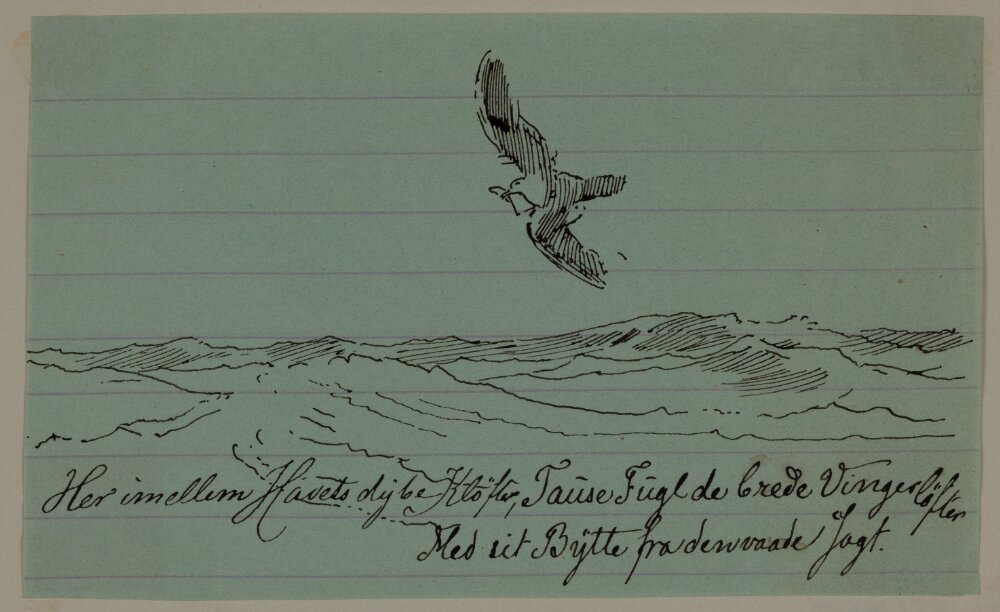 Her imellem Havets dybe Kløfter, Tause Fugl de brede Vinger løfter
Med sit Bytte fra den vaade Jagt.